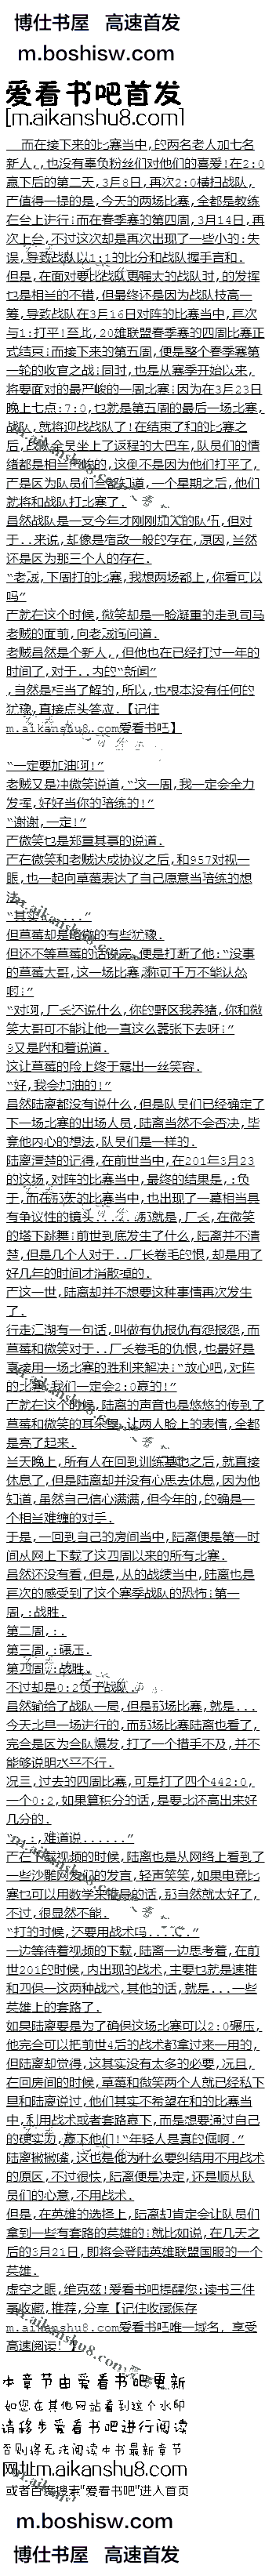 博仕书屋 高速首发
m.boshisw.com
爱看书吧首发
[m.aikanshu8.com]
而在接下来的比赛当中,的两名老人加七名
新人,,也没有辜负粉丝们对他们的喜爱!在2:0
赢下后的第二天,3月8日,再次2:0横扫战队,
产值得一提的是,今天的两场比赛,全都是教练
在台上进行;而在春季赛的第四周,3月14日,再
次上台,不过这次却是再次出现了一些小的:失
误,导致战队以1:1的比分和战队握手言和.
但是,在面对要比战队更强大的战队时,的发挥
也是相当的不错,但最终还是因为战队技高一
筹,导致战队在3月16日对阵的比赛当中,再次
与1:打平!至此,20雄联盟春季赛的四周比赛正
式结束;而接下来的第五周,便是整个春季赛第
一轮的收官之战;同时,也是从赛季开始以来,
将要面对的最严峻的一周比赛;因为在3月23日
晚上七点:7:0,也就是第五周的最后一场比赛,
战队,就将迎战战队了!在结束了和的比赛之
后,战队全员坐上了返程的大巴车,队员们的情
绪都是相当凝峻的,这倒不是因为他们打平了,
产是因为队员们全都知道,一个星期之后,他们
就将和战队打比赛了.
虽然战队是一支今年才刚刚加入的队伍,但对
于..来说,却像是宿敌一般的存在,原因,当然
还是因为那三个人的存在.
“老贼,下周打的比赛,我想两场都上,你看可以
吗”
产就在这个时候,微笑却是一脸凝重的走到司马
老贼的面前,向老贼询问道.
老贼虽然是个新人,,但他也在已经打过一年的
时间了,对于..内的“新闻”
,自然是相当了解的,所以,也根本没有任何的
犹豫,直接点头答应.【记住
m.aikanshu8.com爱看书吧】
“一定要加油啊!”
老贼又是冲微笑说道,“这一周,我一定会全力
发挥,好好当你的陪练的!”
“谢谢,一定!”
产微笑也是郑重其事的说道.
产在微笑和老贼达成协议之后,和957对视一
眼,也一起向草莓表达了自己愿意当陪练的想
法.
“其实......”
但草莓却是略微的有些犹豫.
但还不等草莓的话说完,便是打断了他:“没事
的草莓大哥,这一场比赛,你可千万不能认怂
啊!”
“对啊,厂长还说什么,你的野区我养猪,你和微
笑大哥可不能让他一直这么嚣张下去呀!”
9又是附和着说道.
这让草莓的脸上终于露出一丝笑容.
“好,我会加油的!”
虽然陆离都没有说什么,但是队员们已经确定了
下一场比赛的出场人员,陆离当然不会否决,毕
竟他内心的想法,队员们是一样的.
陆离清楚的记得,在前世当中,在201年3月23
的这场,对阵的比赛当中,最终的结果是,:负
于,而在那天的比赛当中,也出现了一幕相当具
有争议性的镜头......那就是,厂长,在微笑
的塔下跳舞!前世到底发生了什么,陆离并不清
楚,但是几个人对于..厂长卷毛的恨,却是用了
好几年的时间才消散掉的.
产这一世,陆离却并不想要这种事情再次发生
了.
行走江湖有一句话,叫做有仇报仇有怨报怨,而
草莓和微笑对于..厂长卷毛的仇恨,也最好是
直接用一场比赛的胜利来解决!“放心吧,对阵
的比赛,我们一定会2:0赢的!”
产就在这个时候,陆离的声音也是悠悠的传到了
草莓和微笑的耳朵里,让两人脸上的表情,全都
是亮了起来.
当天晚上,所有人在回到训练基地之后,就直接
休息了,但是陆离却并没有心思去休息,因为他
知道,虽然自己信心满满,但今年的,的确是一
个相当难缠的对手.
于是,一回到自己的房间当中,陆离便是第一时
间从网上下载了这四周以来的所有比赛.
虽然还没有看,但是,从的战绩当中,陆离也是
再次的感受到了这个赛季战队的恐怖;第一
周,:战胜.
第二周,:.
第三周,:碾压.
第四周,:战胜.
不过却是0:2负于战队.
虽然输给了战队一局,但是那场比赛,就是...
今天北早一场进行的,而那场比赛陆离也看了,
完全是因为全队爆发,打了一个措手不及,并不
能够说明水平不行.
况三,过去的四周比赛,可是打了四个442:0,
一个0:2,如果算积分的话,是要比还高出来好
几分的.
“..,难道说......”
产在下载视频的时候,陆离也是从网络上看到了
一些沙雕网友们的发言,轻声笑笑,如果电竞比
赛也可以用数学来推导的话,那自然就太好了,
不过,很显然不能.
“打的时候,还要用战术吗......”
一边等待着视频的下载,陆离一边思考着,在前
世201的时候,内出现的战术,主要也就是速推
和四保一这两种战术,其他的话,就是...一些
英雄上的套路了.
如果陆离要是为了确保这场比赛可以2:0碾压,
他完全可以把前世4后的战术都拿过来一用的,
但陆离却觉得,这其实没有太多的必要,况且,
在回房间的时候,草莓和微笑两个人就已经私下
里和陆离说过,他们其实不希望在和的比赛当
中,利用战术或者套路赢下,而是想要通过自己
的硬实力,赢下他们!“年轻人是真的倔啊.”
陆离撇撇嘴,这也是他为什么要纠结用不用战术
的原因,不过很快,陆离便是决定,还是顺从队
员们的心意,不用战术.
但是,在英雄的选择上,陆离却肯定会让队员们
拿到一些有套路的英雄的;就比如说,在几天之
后的3月21日,即将会登陆英雄联盟国服的一个
英雄.
虚空之眼,维克兹!爱看书吧提醒您:读书三件
事收藏,推荐,分享【记住收藏保存
m.aikanshu8.com爱看书吧唯一域名, 享受
高速阅读!】
本章节由爱看书吧更新
如您在其他网站看到这个水印
请移步爱看书吧进行阅读
否则将无法阅读本书最新章节
网址m.aikanshu8.com
或者百度搜索"爱看书吧"进入首页
m.boshisw.com
博仕书屋 高速首发